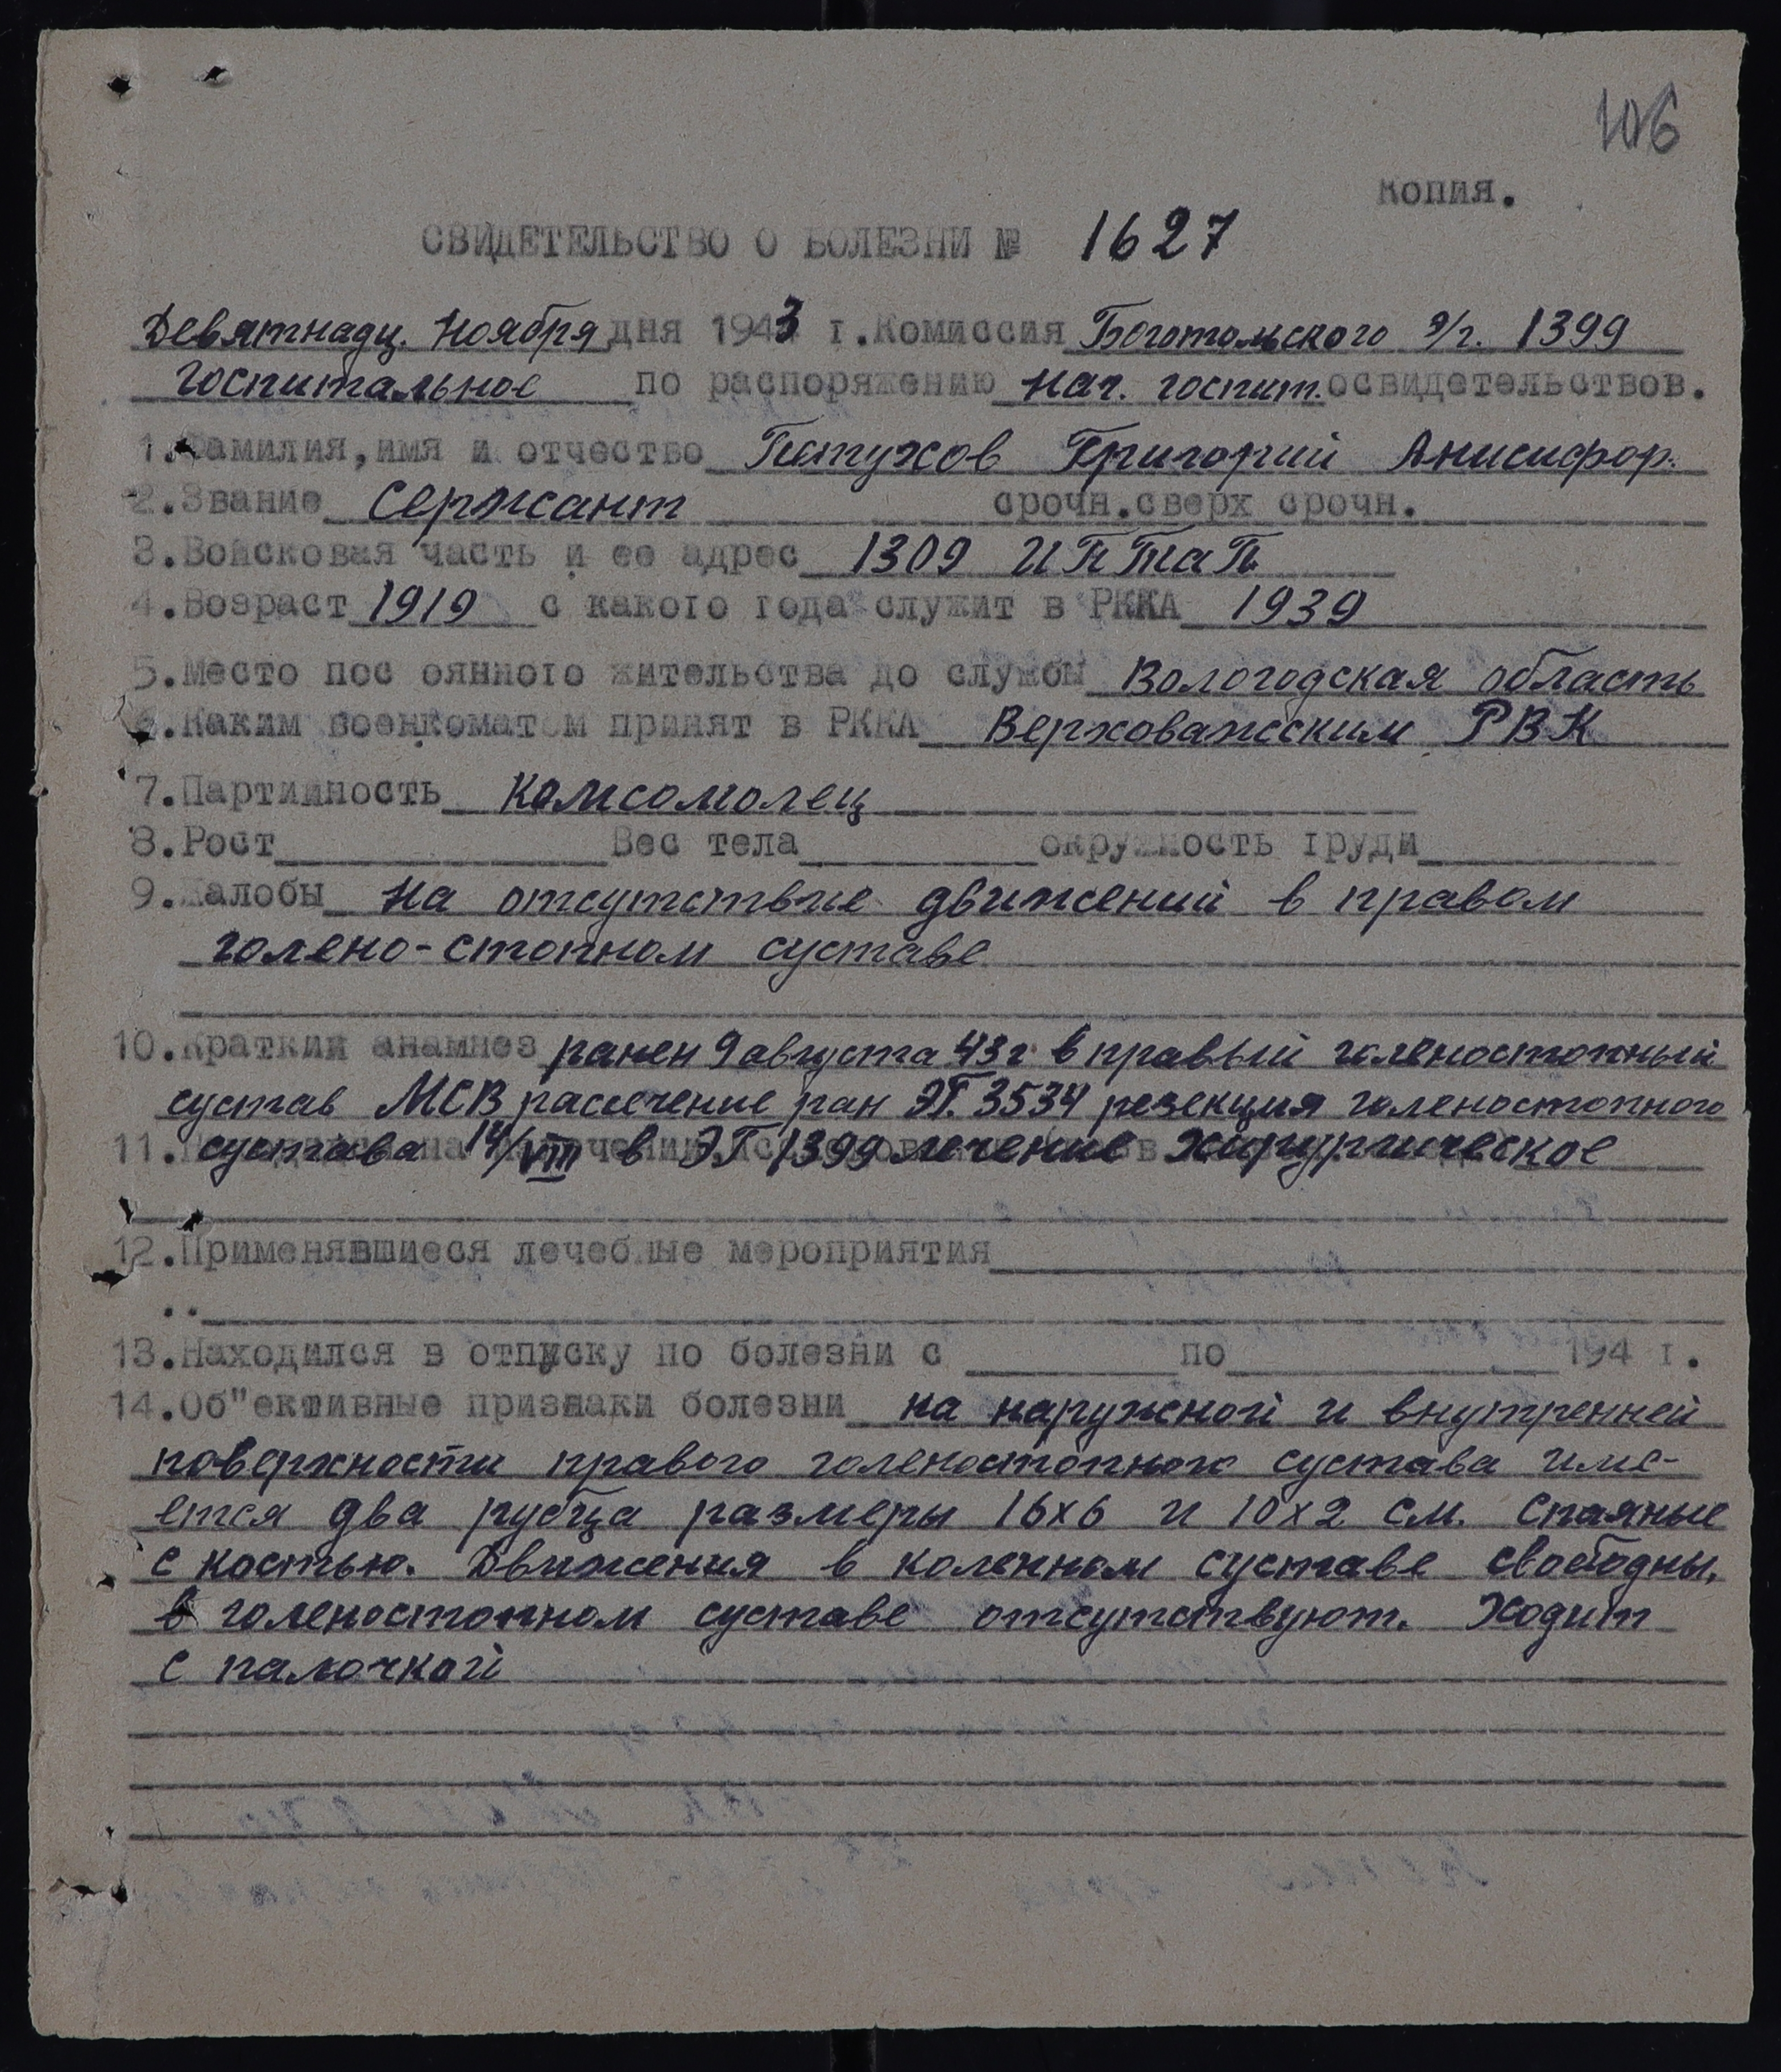 106
Копия.
СВИДЕТЕЛЬСТВО О БОЛЕЗНИ № 1627
Девятнадц. Ноября дня 1943 г. Комиссия Боготольского э/г. 1399
госпитальное по распоряжению нач. госпит. освидетельствов.
1. Фамилия, имя и отчество Петухов Григорий Анисифор.
2. Звание Сержант срочн. сверх срочн.
3. Войсковая часть и ее адрес 1309 ИПТАП
4. Возраст 1919 с какого года служит в РККА 1939
5. Место пос оянного жительства до службы Вологодская область
6. Каким военкоматом принят в РККА Верховажским РВК
7. Партийность Комсомолец
8. Рост Вес тела окружность груди
9. Жалобы на отсутствие движений в правом
голено-стопном суставе
10. Краткий анамнез ранен 9 августа 43 г в правый голеностопный
сустав МСВ рассечение ран ЭГ. 3534 резекция голеностопного
11. сустава 14/VIII в ЭГ 1399 лечение хирургическое
12. Применявшиеся лечебные мероприятия
13. Находился в отпуску по болезни с по 194 г.
14. Об"ективные признаки болезни на наружной и внутренней
поверхности правого голеностопного сустава име-
ется два рубца размеры 16х6 и 10х2 см. Спаяные
с костью. Движения в коленном суставе свободны,
в голеностопном суставе отсутствуют. Ходит
с палочкой